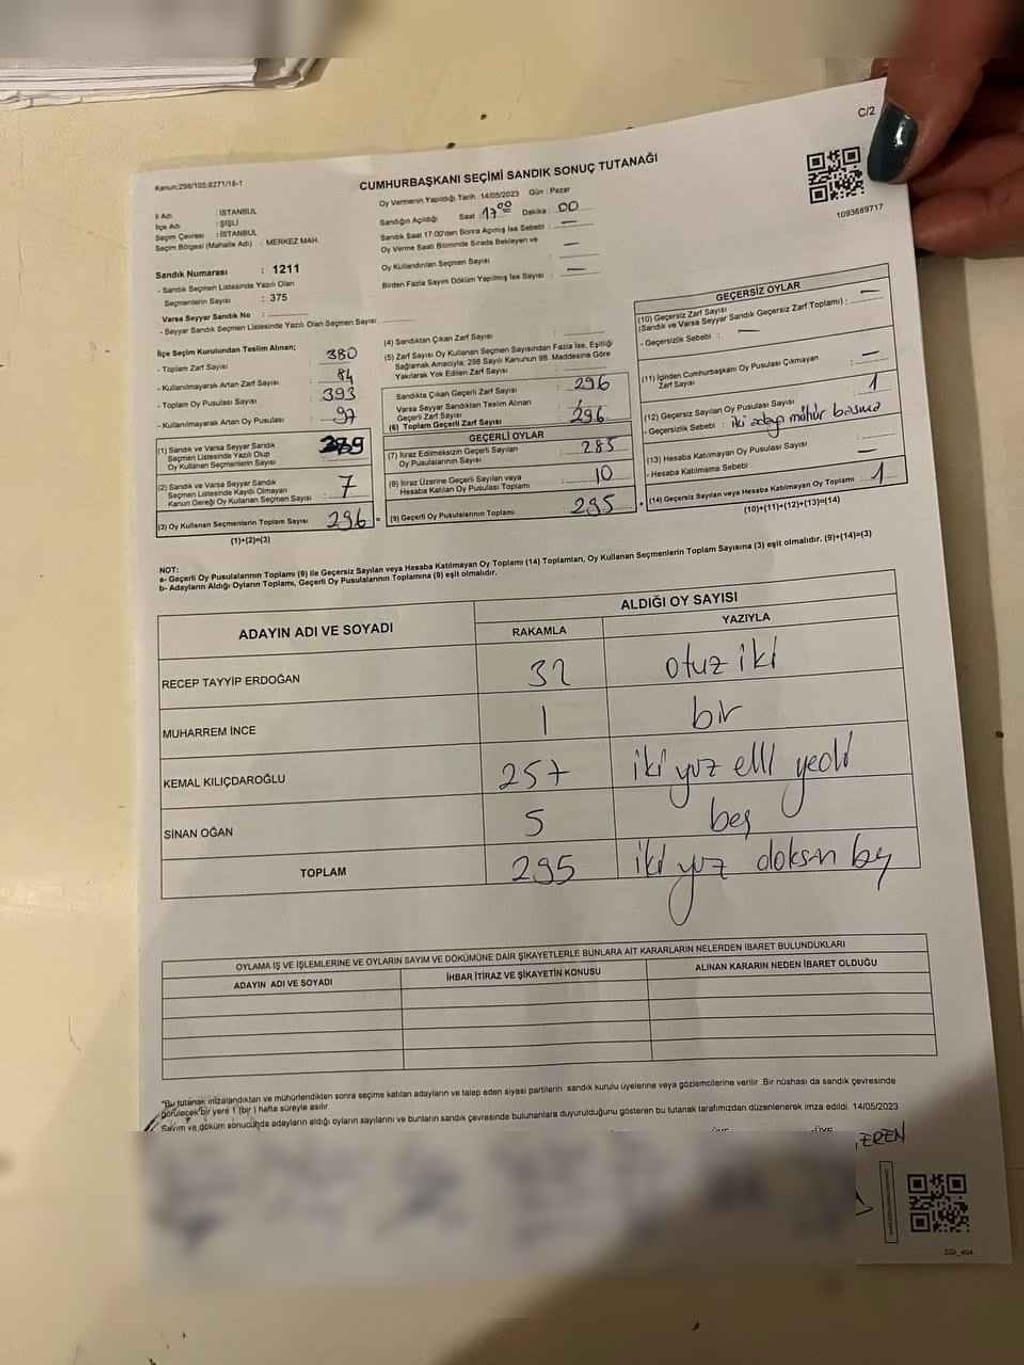 C/2
Kanun:298/105,6271/16-1
CUMHURBAŞKANI SEÇİMİ SANDIK SONUÇ TUTANAĞI
1093689717
İl Adı : İSTANBUL
İlçe Adı : ŞİŞLİ
Seçim Çevresi : İSTANBUL
Seçim Bölgesi (Mahalle Adı) : MERKEZ MAH.
Sandık Numarası : 1211
- Sandık Seçmen Listesinde Yazılı Olan
Seçmenlerin Sayısı : 375
Varsa Seyyar Sandık No :
- Seyyar Sandık Seçmen Listesinde Yazılı Olan Seçmen Sayısı
Oy Vermenin Yapıldığı Tarih :14/05/2023 Gün : Pazar
Sandığın Açıldığı Saat 17:00 Dakika : 00
Sandık Saat 17:00'den Sonra Açılmış İse Sebebi : —
Oy Verme Saati Bitiminde Sırada Bekleyen ve
Oy Kullandırılan Seçmen Sayısı —
Birden Fazla Sayım Döküm Yapılmış İse Sayısı : —
İlçe Seçim Kurulundan Teslim Alınan;
- Toplam Zarf Sayısı : 380
- Kullanılmayarak Artan Zarf Sayısı : 84
- Toplam Oy Pusulası Sayısı : 393
- Kullanılmayarak Artan Oy Pusulası : 97
(1) Sandık ve Varsa Seyyar Sandık
Seçmen Listesinde Yazılı Olup
Oy Kullanan Seçmenlerin Sayısı 289
(2) Sandık ve Varsa Seyyar Sandık
Seçmen Listesinde Kaydı Olmayan
Kanun Gereği Oy Kullanan Seçmen Sayısı 7
(3) Oy Kullanan Seçmenlerin Toplam Sayısı 296
(1)+(2)=(3)
(4) Sandıktan Çıkan Zarf Sayısı
(5) Zarf Sayısı Oy Kullanan Seçmen Sayısından Fazla İse, Eşitliği
Sağlamak Amacıyla; 298 Sayılı Kanunun 98. Maddesine Göre
Yakılarak Yok Edilen Zarf Sayısı
Sandıkta Çıkan Geçerli Zarf Sayısı 296
Varsa Seyyar Sandıktan Teslim Alınan
Geçerli Zarf Sayısı
(6) Toplam Geçerli Zarf Sayısı 296
GEÇERLİ OYLAR
(7) İtiraz Edilmeksizin Geçerli Sayılan
Oy Pusulalarının Sayısı 285
(8) İtiraz Üzerine Geçerli Sayılan veya
Hesaba Katılan Oy Pusulası Toplamı 10
(9) Geçerli Oy Pusulalarının Toplamı 295
GEÇERSİZ OYLAR
(10) Geçersiz Zarf Sayısı
(Sandık ve Varsa Seyyar Sandık Geçersiz Zarf Toplamı) : —
- Geçersizlik Sebebi : —
(11) İçinden Cumhurbaşkanı Oy Pusulası Çıkmayan
Zarf Sayısı : —
(12) Geçersiz Sayılan Oy Pusulası Sayısı : 1
- Geçersizlik Sebebi : iki adaya mühür basma
(13) Hesaba Katılmayan Oy Pusulası Sayısı
- Hesaba Katılmama Sebebi : —
(14) Geçersiz Sayılan veya Hesaba Katılmayan Oy Toplamı 1
(10)+(11)+(12)+(13)=(14)
NOT:
a- Geçerli Oy Pusulalarının Toplamı (9) ile Geçersiz Sayılan veya Hesaba Katılmayan Oy Toplamı (14) Toplamları, Oy Kullanan Seçmenlerin Toplam Sayısına (3) eşit olmalıdır. (9)+(14)=(3)
b- Adayların Aldığı Oyların Toplamı, Geçerli Oy Pusulalarının Toplamına (9) eşit olmalıdır.
ADAYIN ADI VE SOYADI
ALDIĞI OY SAYISI
RAKAMLA YAZIYLA
RECEP TAYYİP ERDOĞAN 32 otuz iki
MUHARREM İNCE 1 bir
KEMAL KILIÇDAROĞLU 257 iki yüz elli yedi
SİNAN OĞAN 5 beş
TOPLAM 295 iki yüz doksan beş
OYLAMA İŞ VE İŞLEMLERİNE VE OYLARIN SAYIM VE DÖKÜMÜNE DAİR ŞİKAYETLERLE BUNLARA AİT KARARLARIN NELERDEN İBARET BULUNDUKLARI
ADAYIN ADI VE SOYADI İHBAR İTİRAZ VE ŞİKAYETİN KONUSU ALINAN KARARIN NEDEN İBARET OLDUĞU
"Bu tutanak imzalandıktan ve mühürlendikten sonra seçime katılan adayların ve talep eden siyasi partilerin sandık kurulu üyelerine veya gözlemcilerine verilir. Bir nüshası da sandık çevresinde
görülecek bir yere 1 (bir ) hafta süreyle asılır.
Sayım ve döküm sonucunda adayların aldığı oyların sayılarını ve bunların sandık çevresinde bulunanlara duyurulduğunu gösteren bu tutanak tarafımızdan düzenlenerek imza edildi. 14/05/2023
EREN